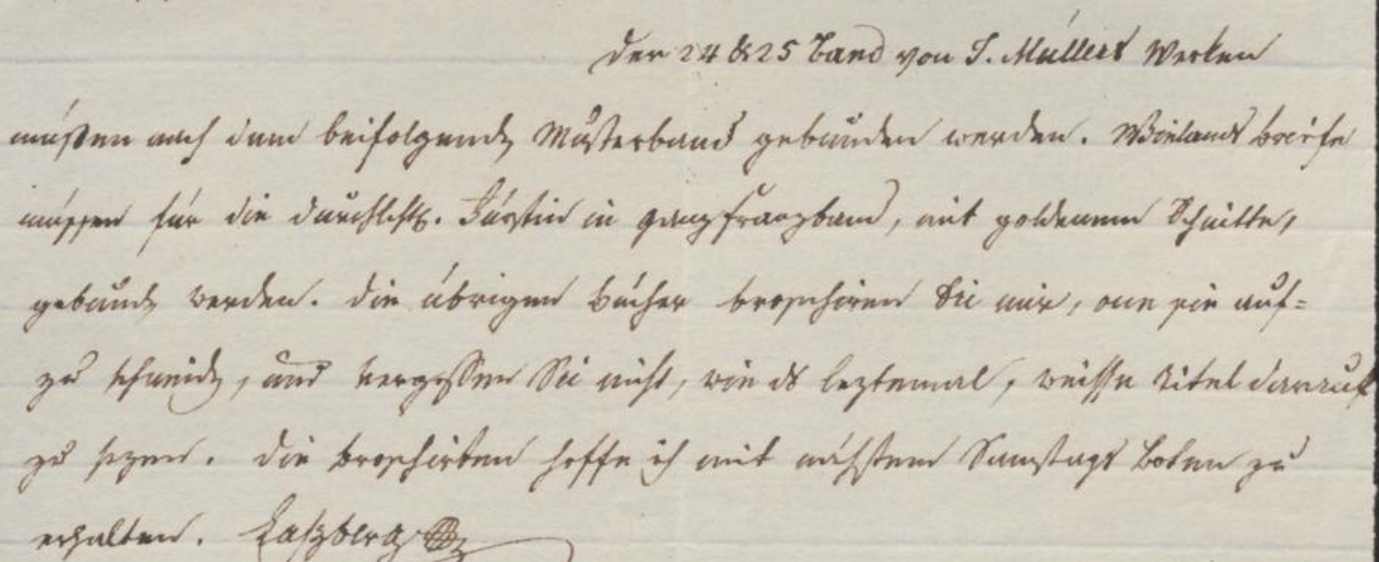 der 24 & 25 Band von J. Müllers Werken
müßen nach dem beifolgendn Musterband gebunden werden. Wielands briefe
müssen für die durchlcht. Fürstin in ganz franzband, mit goldenem Schnitte,
gebundn werden. die übrigen bücher broschiren Sie mir, one sie auf=
zu schneidn, und vergessen Sie nicht, wie ds leztemal, weisse titel darauf
zu sezen. die broschirten hoffe ich mit nächstem Samstags boten zu
erhalten. Laszberg